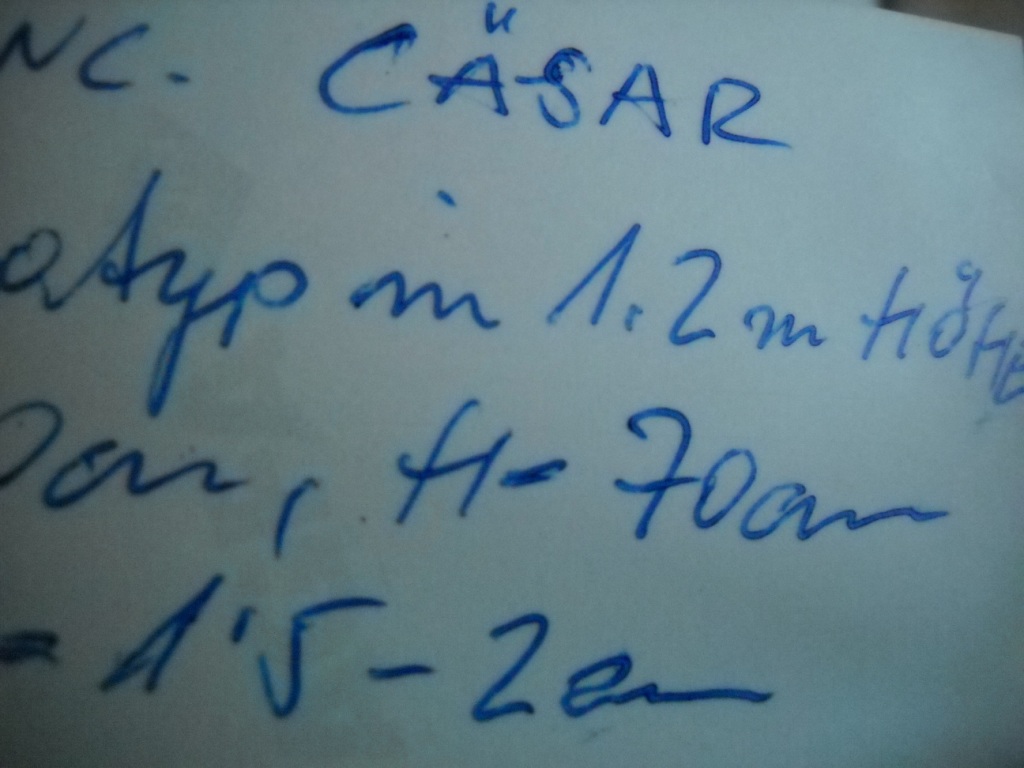 NC. CÄSAR
atyp in 1.2 m HÖHE
0cm, H- 70cm
= 1'5 - 2cm